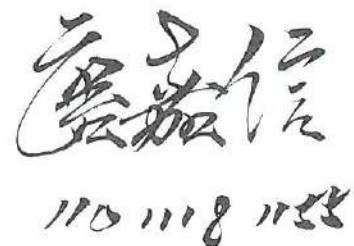 詹嘉信
110 1118 1155